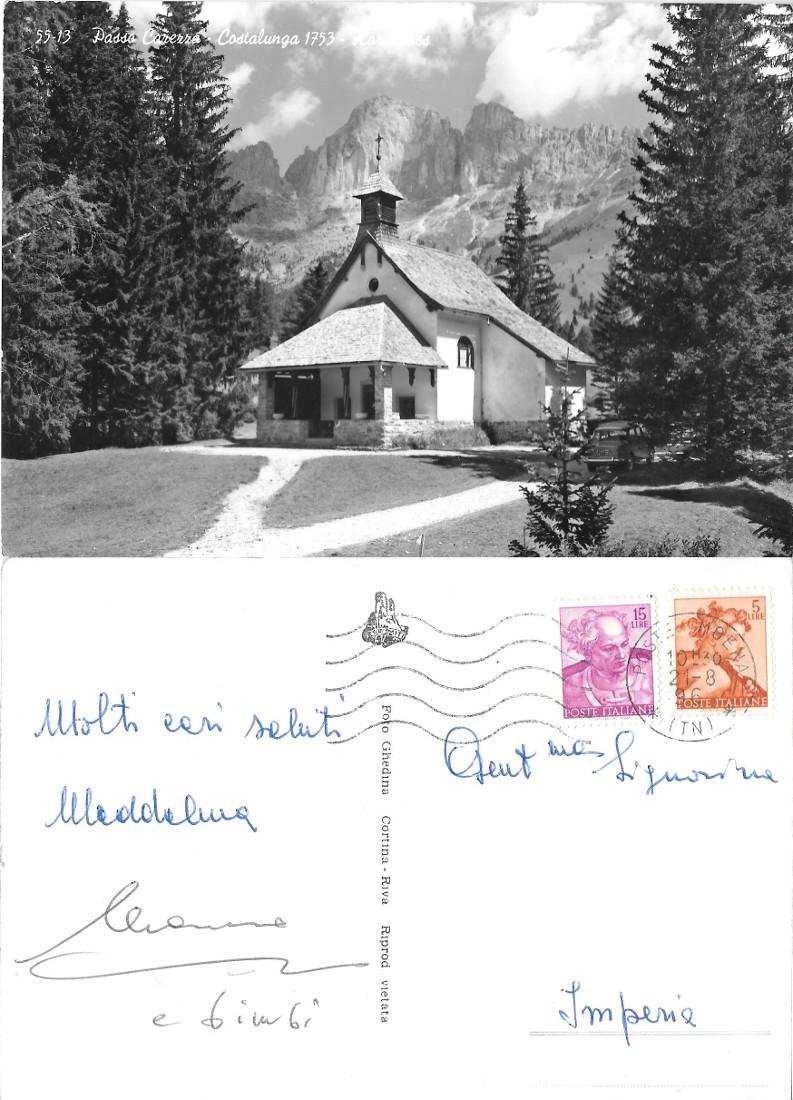 55-13 Passo Carezza - Costalunga 1753 -
15
LIRE
POSTE ITALIANE
5
LIRE
POSTE ITALIANE
MOENA
10
21-8
(TN)
Molti cari saluti
Maddalena
e bimbi
Foto Ghedina Cortina - Riva Riprod vietata
Gent ma Signorina
Imperia